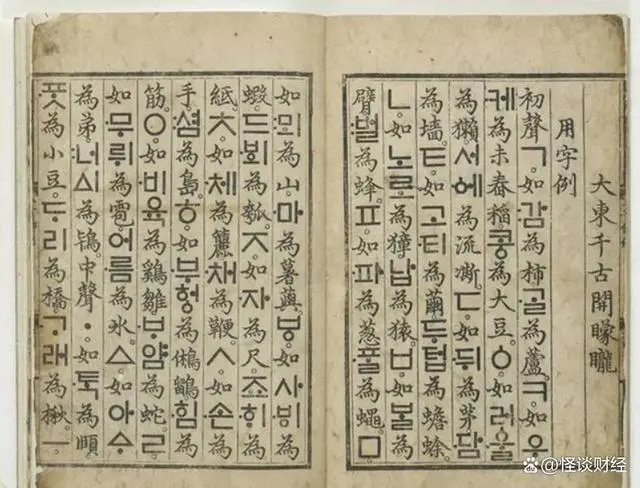 大東千古開矇矓
用字例
初聲ㄱ。如감為柿。ᄀᆞᆯ為蘆。ㅋ。如우
케為未舂稻。콩為大豆。ㆁ。如러울
為獺。서에為流凘。ㄷ。如뒤為茅。담
為墻。ㅌ。如고티為繭。두텁為蟾蜍。
ㄴ。如노로為獐。납為猿。ㅂ。如ᄇᆞᆯ為
臂。벌為蜂。ㅍ。如파為葱。ᄑᆞᆯ為蠅。ㅁ。
如뫼為山。마為薯藇。ㅸ。如사ᄫᅵ為
蝦。드ᄫᅴ為瓠。ㅈ。如자為尺。죠ᄒᆡ為
紙。ㅊ。如체為籭。채為鞭。ㅅ。如손為
手。셤為島。ㅎ。如부헝為鵂鶹。힘為
筋。ㅇ。如비육為鷄雛。ᄇᆞ얌為蛇。ㄹ。
如무뤼為雹。어름為氷。ㅿ。如아ᅀᆞ
為弟。너ᅀᅵ為鴇。中聲ㆍ。如ᄐᆞᆨ為頤。
ᄑᆞᆺ為小豆。ᄃᆞ리為橋。ᄀᆞ래為楸。ㅡ。
@怪谈财经